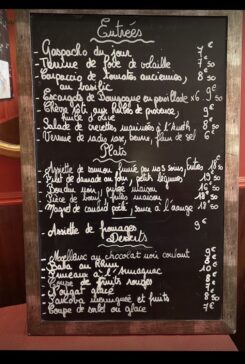 Entrées
Gaspacho du jour 7€
Terrine de foie de volaille 7€50
Carpaccio de tomates anciennes, 8€50
au basilic
Escargots de Bourgogne en persillade x6 9€
Chèvre rôti aux herbes de provence, 8€50
huile d'olive
Salade de crevettes marinées à l'Aneth, 8€50
Verrine de radis rose, beurre, fleur de sel 6€
Plats
Assiette de saumon fumé par nos soins, frites 18€50
Boudin noir, purée maison
Pièce de boeuf, frites maison
Magret de canard poêlé, sauce à l'orange 18€50
Assiette de fromages 9€
Desserts
Moelleux au chocolat noir coulant
Baba au Rhum
Pruneaux à l'Armagnac
Coupe de fruits rouges
Nougat glacé
meringuée et fruits
Coupe de sorbet ou glace